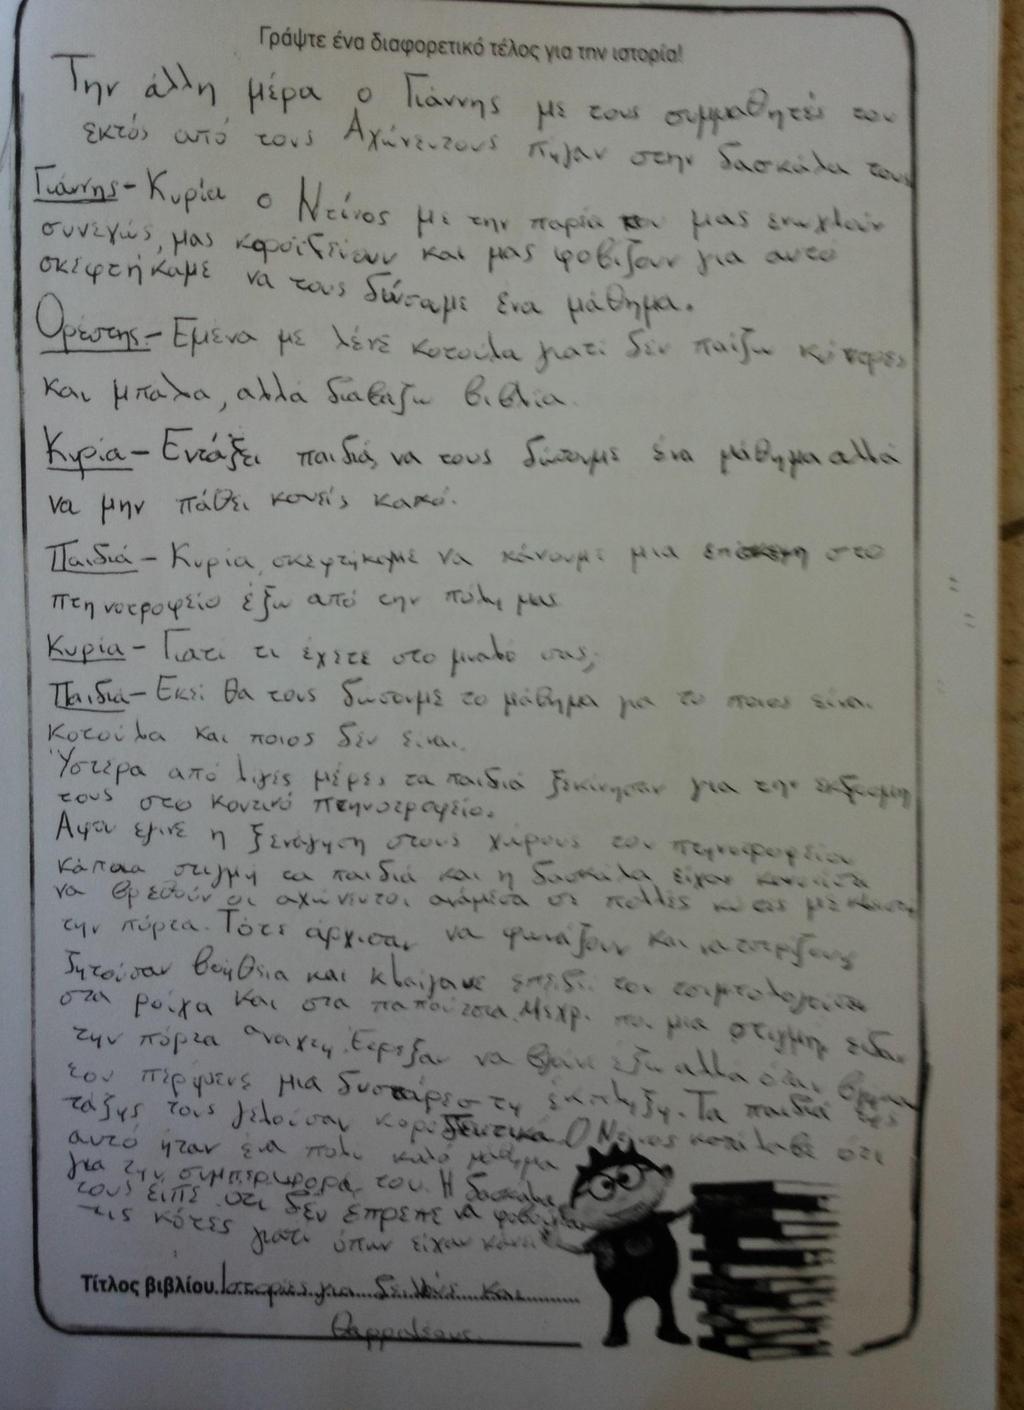 Γράψτε ένα διαφορετικό τέλος για την ιστορία!
Την άλλη μέρα ο Γιάννης με τους συμμαθητές του
εκτός από τους Αχώνευτους πήγαν στην δασκάλα τους
Γιάννης - Κυρία ο Ντίνος με την παρέα του μας ενοχλούν
συνεχώς, μας κοροϊδεύουν και μας φοβίζουν για αυτό
σκεφτήκαμε να τους δώσαμε ένα μάθημα.
Ορέστης - Εμένα με λένε κοτούλα γιατί δεν παίζω
και μπάλα, αλλά διαβάζω βιβλία.
Κυρία - Εντάξει παιδιά, να τους δώσουμε ένα μάθημα αλλά
να μην πάθει κανείς κακό.
Παιδιά - Κυρία, σκεφτήκαμε να κάνουμε μια επίσκεψη στο
πτηνοτροφείο έξω από την πόλη μας
Κυρία - Γιατί τι έχετε στο μυαλό σας;
Παιδιά - Εκεί θα τους δώσουμε το μάθημα για το ποιος είναι
κοτούλα και ποιος δεν είναι.
Ύστερα από λίγες μέρες τα παιδιά ξεκίνησαν για την εκδρομή
τους στο κοντινό πτηνοτροφείο.
Αφού έγινε η ξενάγηση στους χώρους του πτηνοτροφείου
κάποια στιγμή τα παιδιά και η δασκάλα είχαν κανονίσει
να βρεθούν οι αχώνευτοι ανάμεσα σε πολλές κότες με κλειστή
την πόρτα. Τότε άρχισαν να φωνάζουν και να τσιρίζουν
ζητούσαν βοήθεια και κλαίγανε επειδή τους τσιμπολογούσαν
στα ρούχα και στα παπούτσια. Μέχρι που μια στιγμή είδαν
την πόρτα ανοιχτή. Έτρεξαν να βγουν έξω αλλά όταν βγήκαν
τον περίμενε μια δυσάρεστη έκπληξη. Τα παιδιά της
τάξης τους γελούσαν κοροϊδευτικά. Ο Ντίνος κατάλαβε ότι
αυτό ήταν ένα πολύ καλό μάθημα
για την συμπεριφορά του. Η δασκάλα
τους είπε ότι δεν έπρεπε να
τις κότες γιατί όπως είχαν κάνει
Τίτλος βιβλίου. Ιστορίες για δειλούς και
θαρραλέους